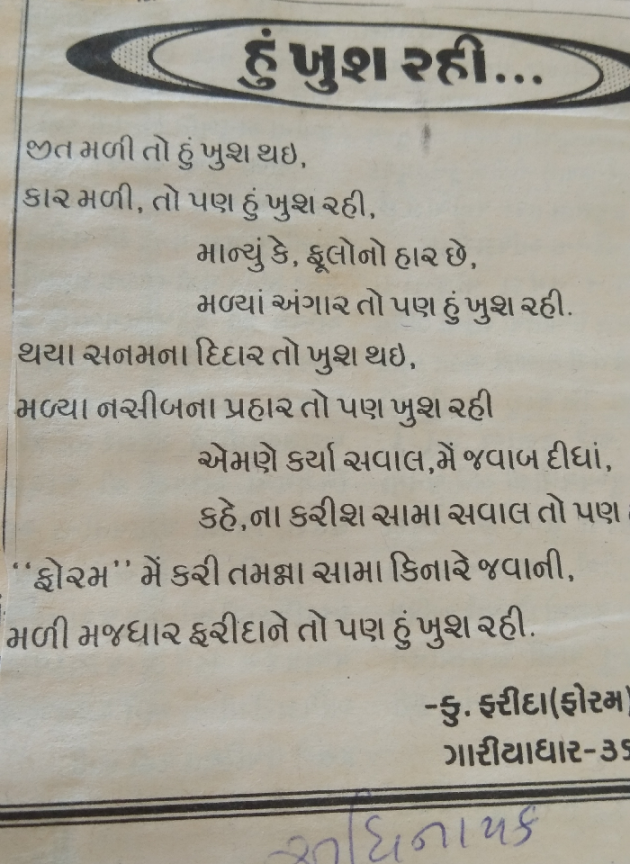 હું ખુશ રહી...
જીત મળી તો હું ખુશ થઇ,
કાર મળી, તો પણ હું ખુશ રહી,
માન્યું કે, ફૂલોનો હાર છે,
મળ્યાં અંગાર તો પણ હું ખુશ રહી.
થયા સનમના દિદાર તો ખુશ થઇ,
મળ્યા નસીબના પ્રહાર તો પણ ખુશ રહી
એમણે કર્યા સવાલ,મેં જવાબ દીધાં,
કહે,ના કરીશ સામા સવાલ તો પણ
“ફોરમ” મેં કરી તમન્ના સામા કિનારે જવાની,
મળી મજધાર ફરીદાને તો પણ હું ખુશ રહી.
-કુ. ફરીદા(ફોરમ)
ગારીયાધાર-૩ડ
અધિનાયક